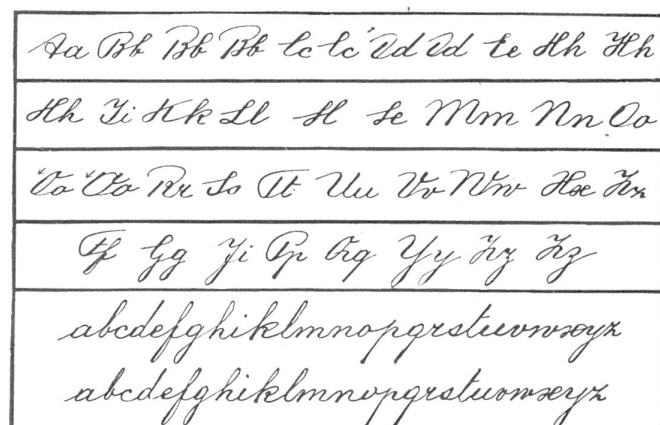 Aa Bb Bb Bb Cc Cc Dd Dd Ee Hh Hh
Hh Ii Kk Ll Mm Nn Oo
Oo Oo Rr Ss Tt Uu Vv Ww Zz
Ff Gg Jj Pp Qq Yy Zz Zz
abcdefghiklmnopqrstuvwxyz
abcdefghiklmnopqrstuvwxyz